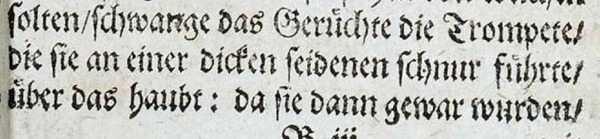 solten/schwange das Gerüchte die Trompete/
die sie an einer dicken seidenen schnur führte/
über das haubt: da sie dann gewar wurden/